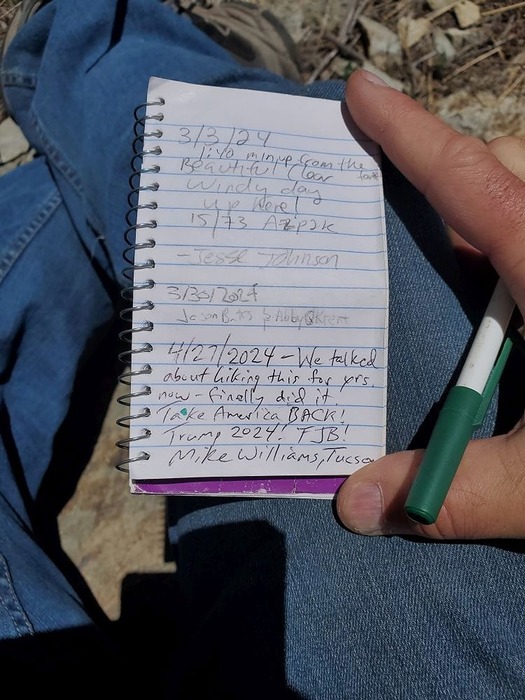 3/3/24
1:40 min up from the
Beautiful Clear
Windy day
up here!
15/73 AZP2K
- Jesse Johnson
3/30/2024
Jason Bates &
4/27/2024 - We talked
about hiking this for yrs
now - finally did it.
Take America BACK!
Trump 2024! FJB!
Mike Williams, Tucson